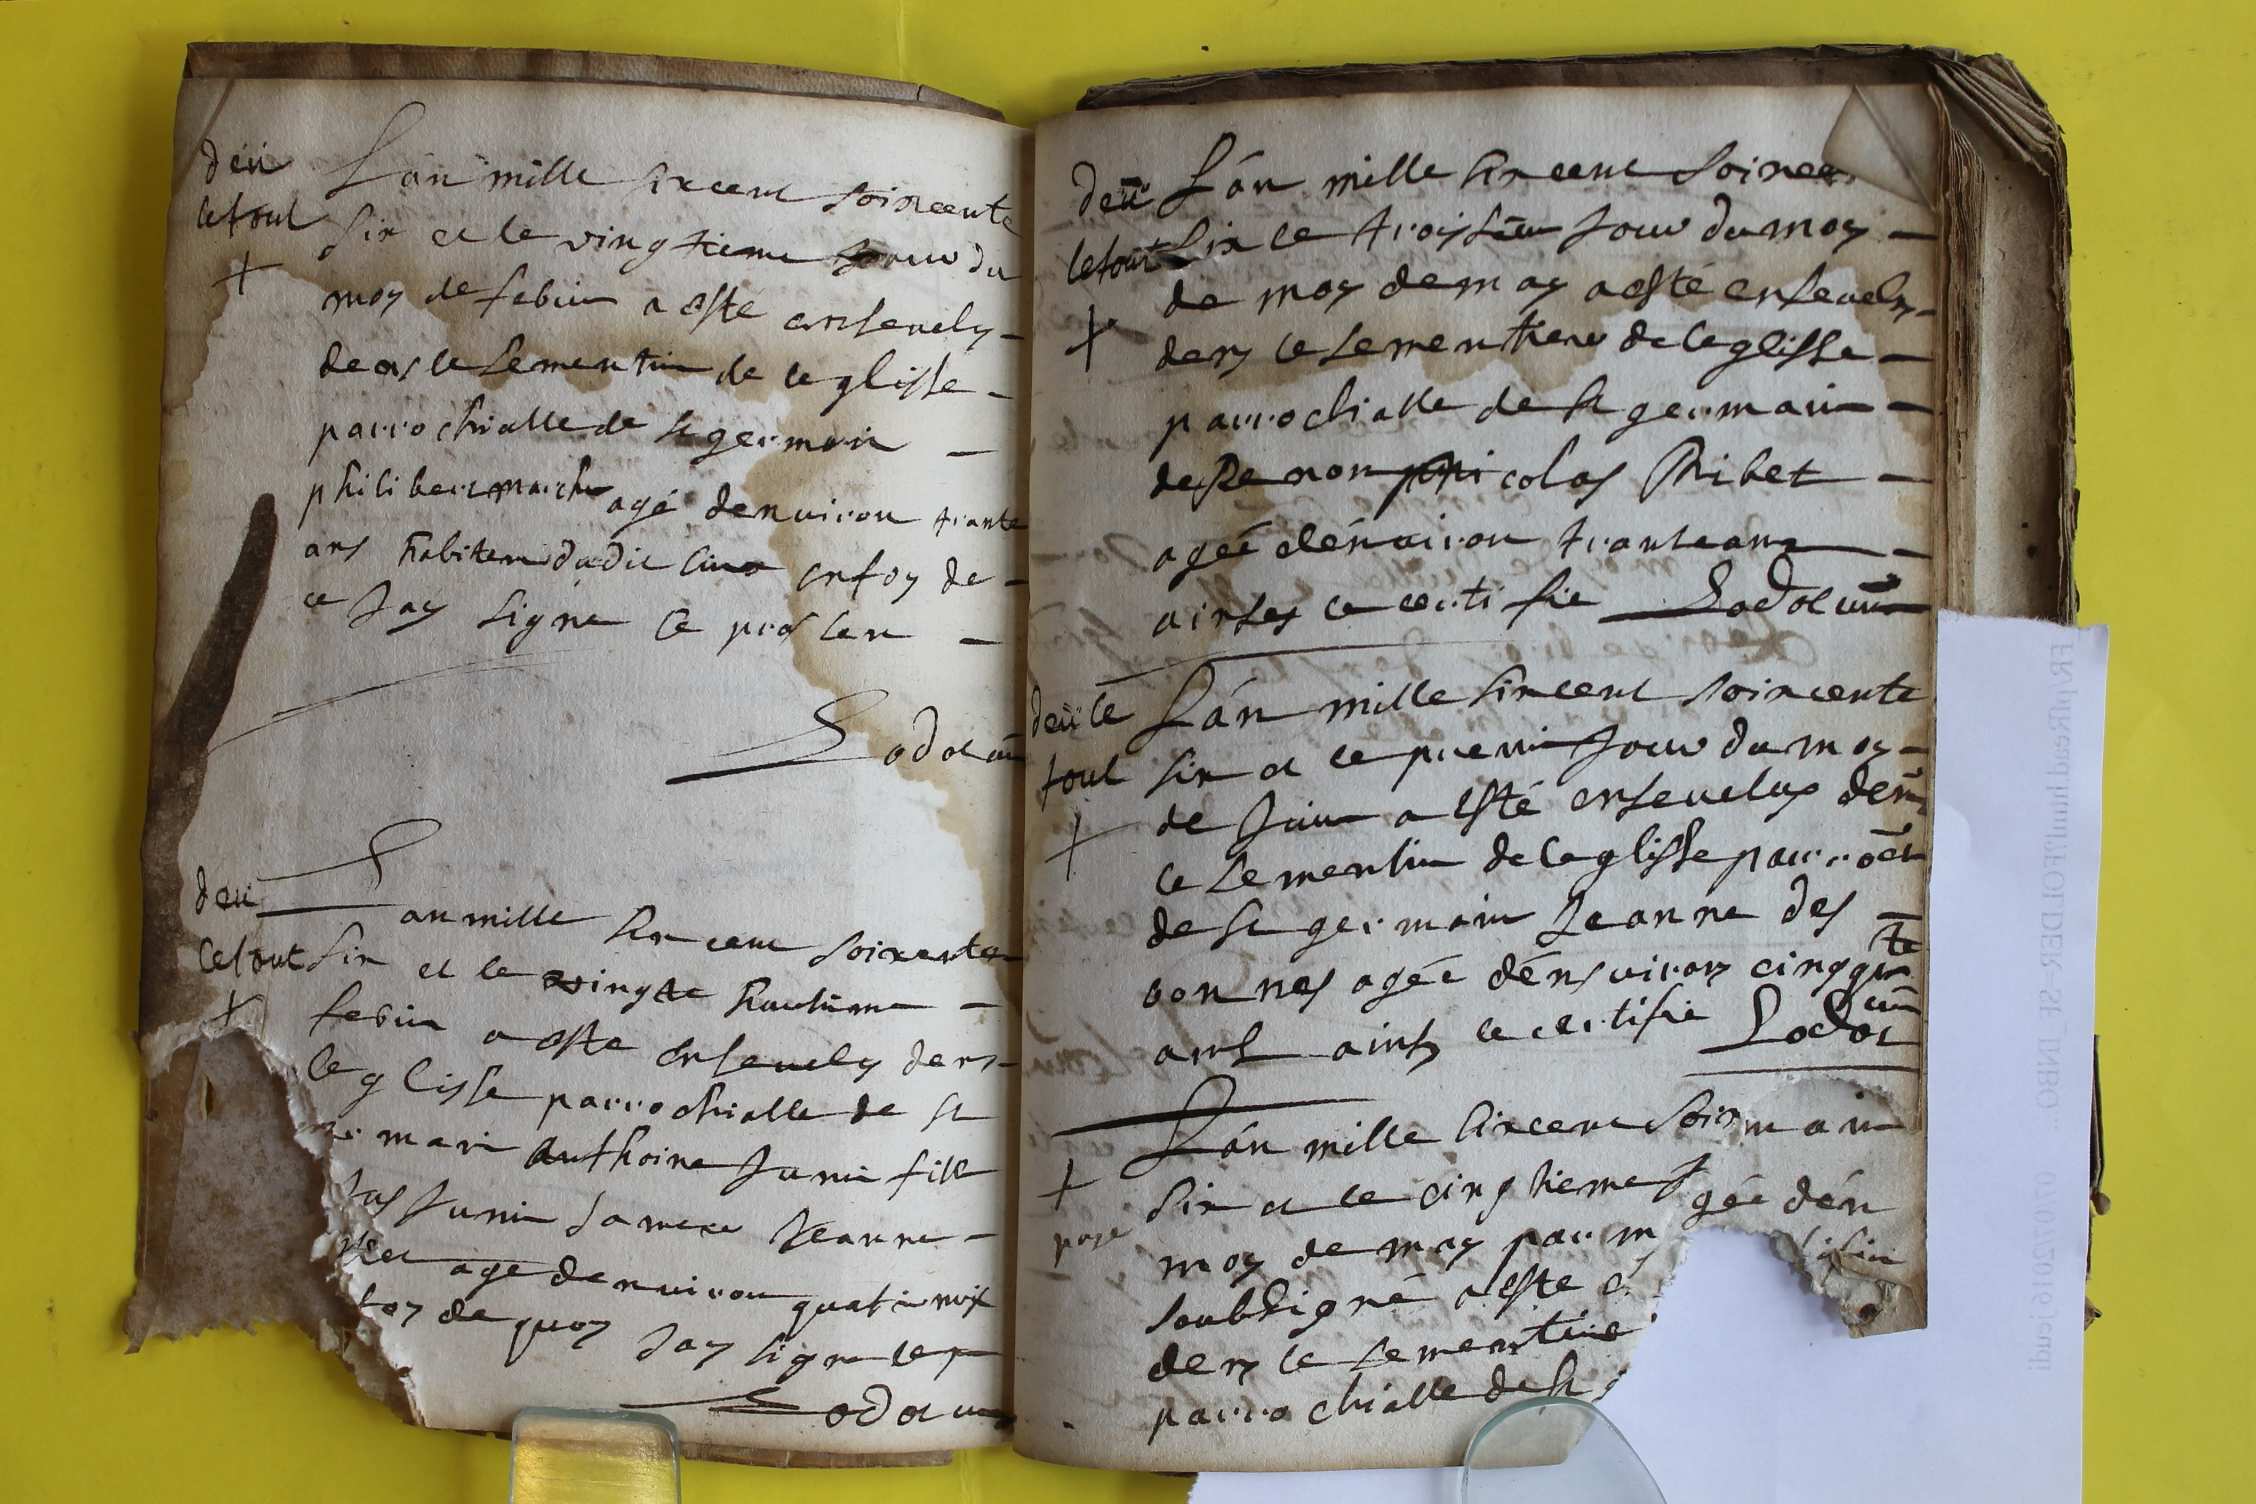 deü
le tout
L'an mille sixcent soixcente
six et le vingtieme jour du
moy de febvie a esté ensevely
dens le sementiere de leglisse
parrochialle de st germain
philibert marche agé denviron trante
ans habitent dudit lieu en foy de
ce Jay signe le presen
deu
le tout
L an mille sixcent soixente
six et le vingte huictieme
febvie a esté ensevely dens
leglisse parrochialle de st
main Anthoine Junie fill
Junie sa mere Jeanne
agé denviron quatre
foy de quoy Jay signe le p
deü
le tout
L'an mille sixcent soixcen
six le troysieme Jour du moy
de moy de may a esté ensevely
dens le sementiere de leglisse
parrochialle de st germain
de Re nicolas Ribet
agée d'énviron trante ans
ainsey le certifie
deü le
tout
L'an mille sixcent soixcente
six et le premie Jour du moy
de Juin a esté ensevelye dens
le sementiere de leglisse parro
de st germain Jeanne des
bonnes agée d'énsviron cinqqte
ans ainsy le certifie
L'an mille sixcent soix main
six et le cinqtieme J gée d'én
moy de may par m
soubsigné a esté e
dens le sementiere
parrochialle de st g
FRprRead.html?FOLDER=SE_INBO... 07/07/2016 jeudi